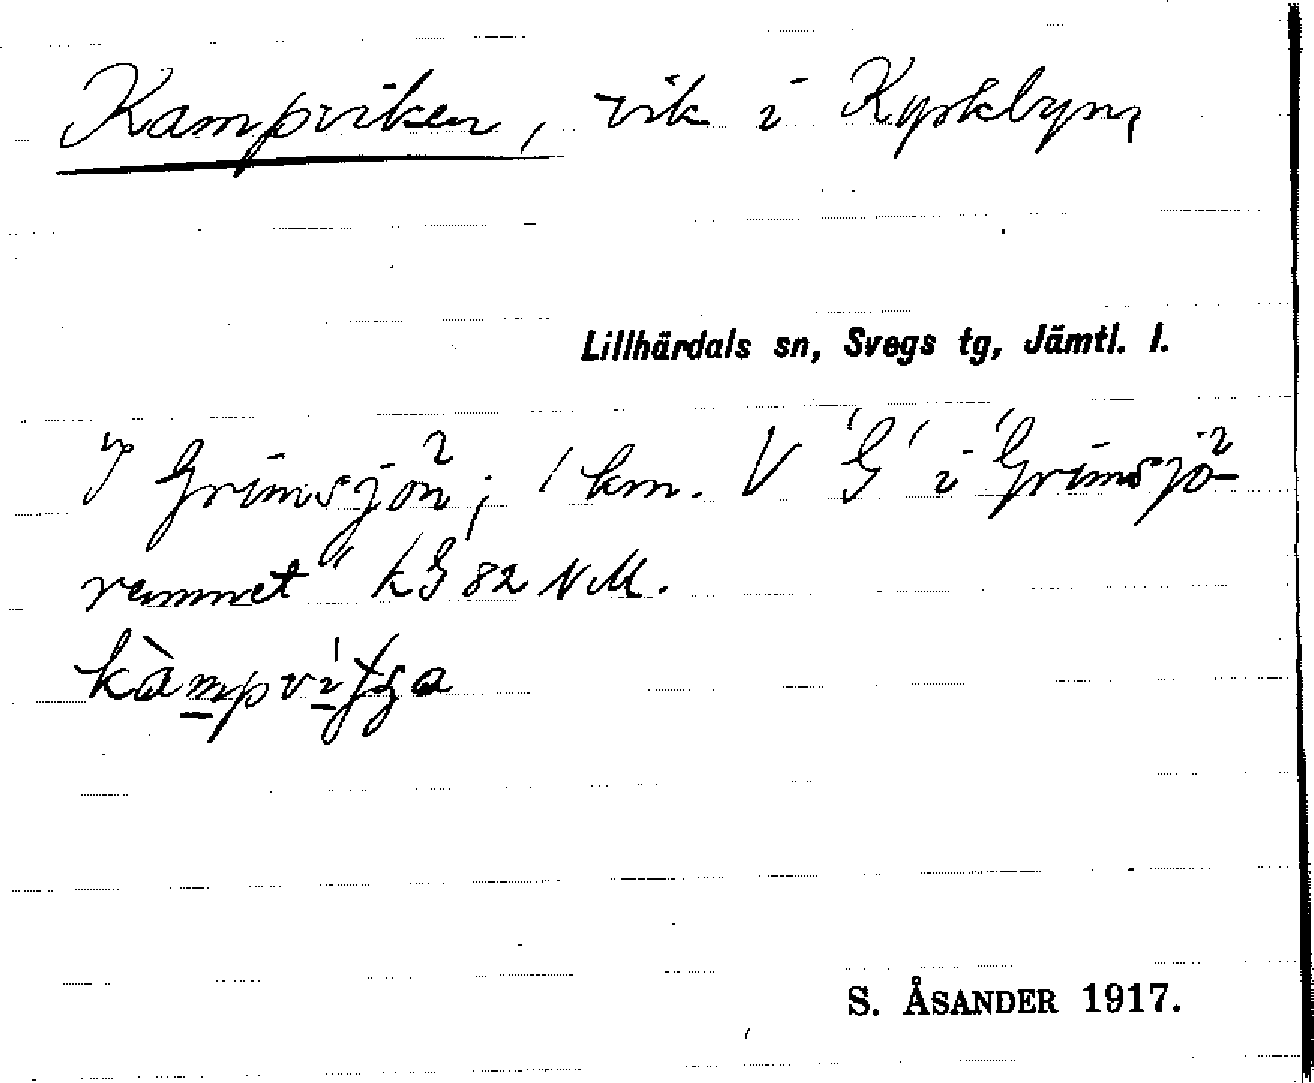 Kampviken, vik i Kyrkbyn,
Lillhärdals sn, Svegs tg, Jämtl. l.
I Grimsjön; 1 km. V "G" i "Grimsjö-
remmet" kG 82 NM.
S. ÅSANDER 1917.